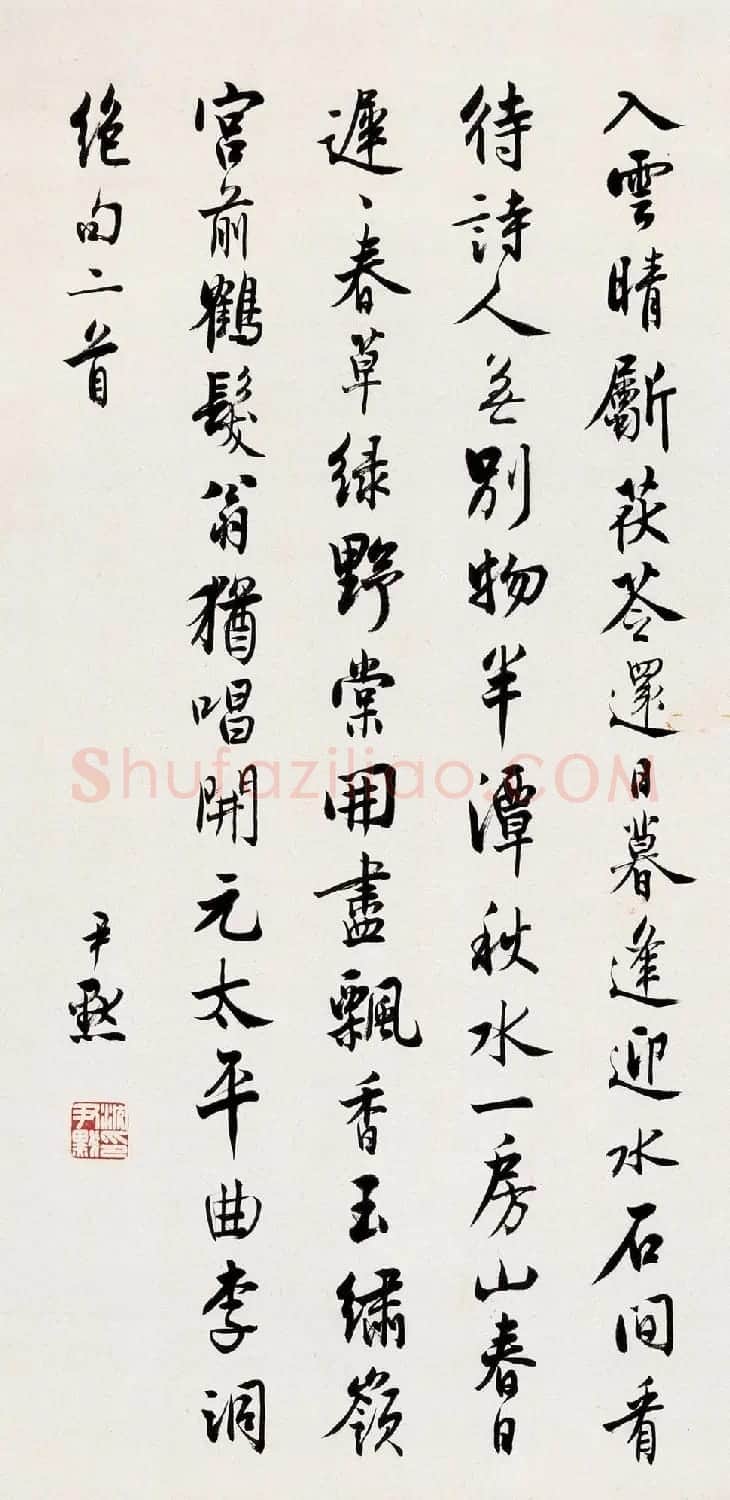 入雲晴斸茯苓還日暮逢迎水石間看
待詩人無別物半潭秋水一房山春日
遲、春草绿野棠開盡飄香玉繡嶺
宮前鶴髮翁猶唱開元太平曲李洞
絕句二首
尹默
沈尹默印
Shufaziliao.COM